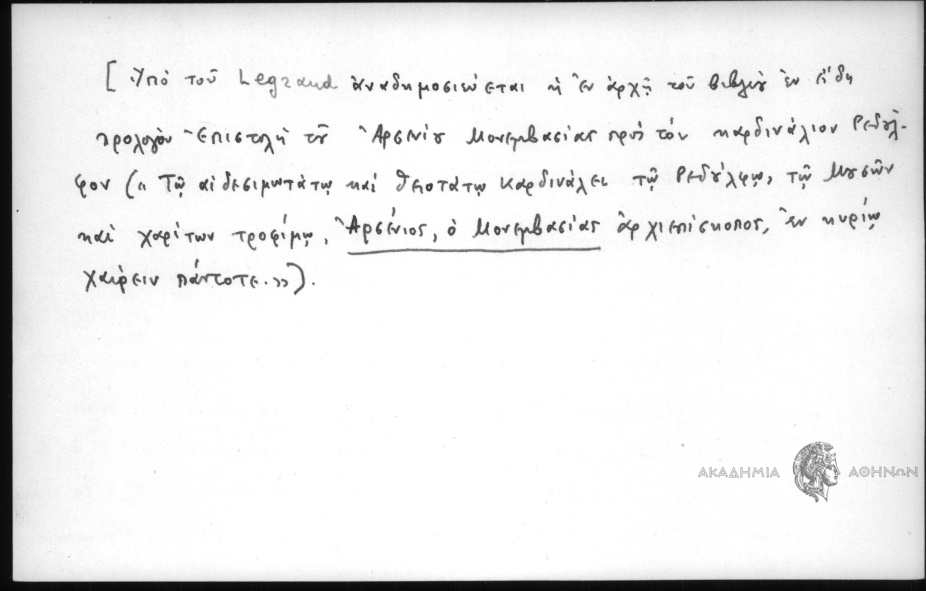 [Ὑπὸ τοῦ Legrand ἀναδημοσιεύεται ἡ ἐν ἀρχῇ τοῦ βιβλίου ἐν εἴδει
προλόγου ἐπιστολὴ τοῦ Ἀρσενίου Μονεμβασίας πρὸς τὸν καρδινάλιον Ρεδούλ-
φον (« Τῷ αἰδεσιμωτάτῳ καὶ θειοτάτῳ καρδινάλει τῷ Ρεδούλφῳ, τῷ Μουσῶν
καὶ χαρίτων τροφίμῳ, Ἀρσένιος, ὁ Μονεμβασίας ἀρχιεπίσκοπος, ἐν κυρίῳ
χαίρειν πάντοτε.»).
ΑΚΑΔΗΜΙΑ ΑΘΗΝΩΝ